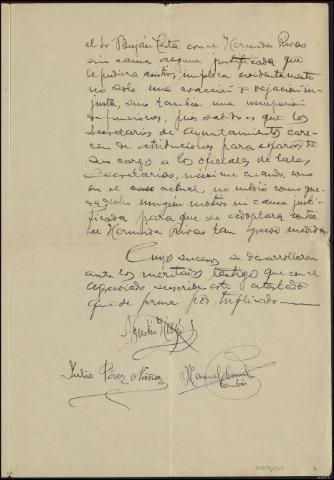 el Sr Buján Ceita con el Hermida Rivas
sin causa alguna justificada que
le pudiera asistir, implica evidentemente
no solo una coacción o vejación in-
justa, sino tambien una usurpación
de funciones, pues sabido es que los
Secretarios de Ayuntamiento care-
cen de atribuciones para separar de
sus cargos a los oficiales de tales
Secretarías, máxime cuando, como
en el caso actual, no medió como que-
da dicho ningún motivo ni causa justi-
ficada para que se adoptara contra
el Hermida Rivas tan grave medida.
Cuyo suceso se desarrollaron
ante los meritados testigos que con el
suscriben este atestado
que se firma por triplicado
Agustin
Julio Perez Nuñez
Manuel